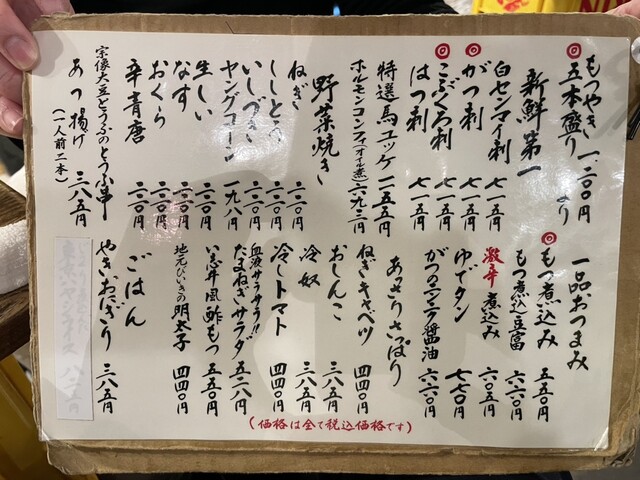 もつやき
五本盛り 一、一〇〇円より
新鮮第一
白センマイ刺 七一五円
がつ刺 七一五円
こぶくろ刺 七一五円
はつ刺 七一五円
特選馬ユッケ 一、一五五円
ホルモンコンフィ(オイル煮) 六九三円
野菜焼き
ねぎ 二二〇円
ししとう 二二〇円
いしづき 二二〇円
ヤングコーン 一九八円
生しい 二二〇円
なす 二二〇円
おくら 二二〇円
辛青唐 二二〇円
宗像大豆とうふのとうふ串
あつ揚げ 三八五円
(一人前二本)
一品おつまみ
もつ煮込み 五五〇円
もつ煮込豆富 六六〇円
激辛煮込み 六〇五円
ゆでタン 七七〇円
がつ 醤油 六六〇円
あっさりさっぱり
ねぎキャベツ 四四〇円
おしんこ 三八五円
冷奴 三八五円
冷しトマト 四四〇円
血液サラサラ!!
たまねぎサラダ 五二八円
いし井風酢もつ 五五〇円
地元びいきの明太子 四四〇円
ごはん
やきおにぎり 三八五円
(価格は全て税込価格です)